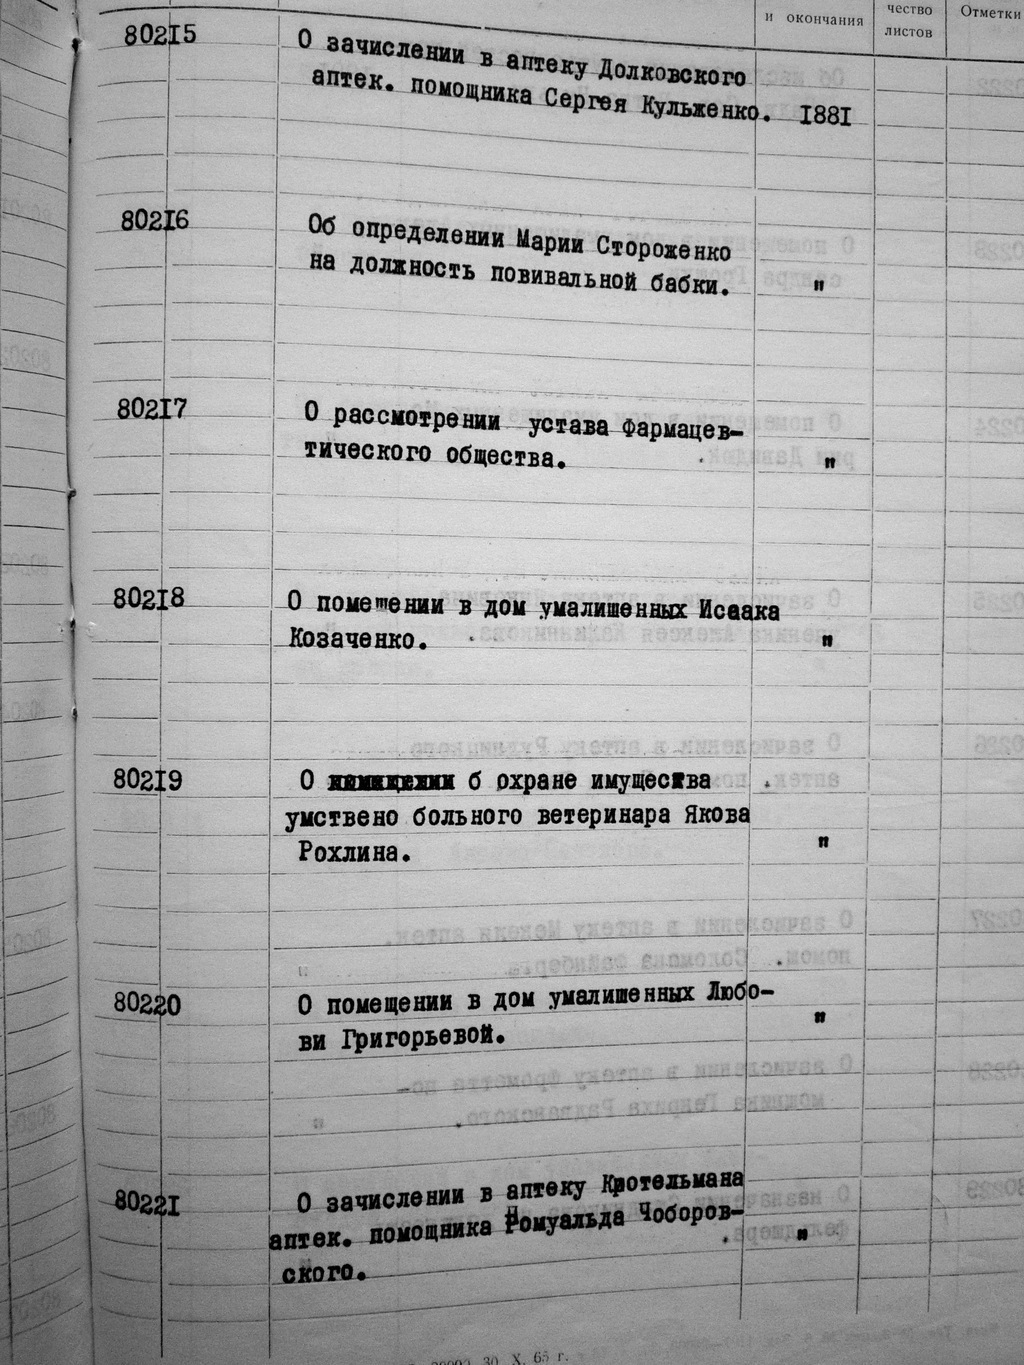 и окончания
чество
листов
Отметки
80215
О зачислении в аптеку Долковского
аптек. помощника Сергея Кульженко. 1881
80216
Об определении Марии Стороженко
на должность повивальной бабки. "
80217
О рассмотрении устава Фармацев-
тического общества. "
80218
О помещении в дом умалишенных Исаака
Козаченко. "
80219
О б охране имущества
умствено больного ветеринара Якова
Рохлина. "
80220
О помещении в дом умалишенных Любо-
ви Григорьевой. "
80221
О зачислении в аптеку Кротельмана
аптек. помощника Ромуальда Чоборов-
ского. "
30. X. 65 г.